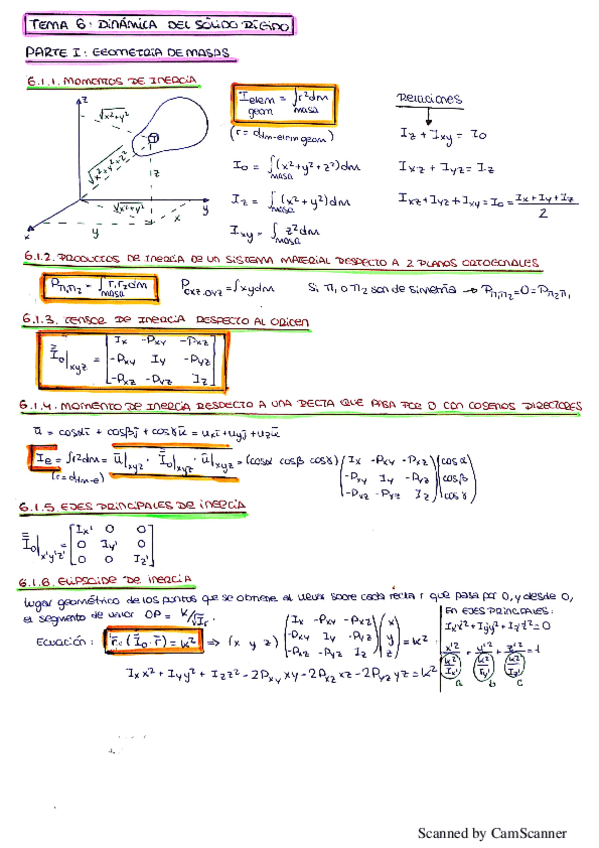 TEMA 6: DINÁMICA DEL SÓLIDO RÍGIDO
PARTE I: GEOMETRÍA DE MASAS
6.1.1. MOMENTOS DE INERCIA
z
√x²+y²
√x²+y²+z²
z
√x²+y²
x
y
y
x
I elem geom = ∫masa r²dm
(r = d dm-elem geom)
I₀ = ∫masa (x²+y²+z²)dm
Iz = ∫masa (x²+y²)dm
Ixy = ∫masa z²dm
RELACIONES
Iz + Ixy = I₀
Ixz + Iyz = Iz
Ixz + Iyz + Ixy = I₀ = (Ix+Iy+Iz)/2
6.1.2. PRODUCTOS DE INERCIA DE UN SISTEMA MATERIAL RESPECTO A 2 PLANOS ORTOGONALES
Pπ₁π₂ = ∫masa r₁r₂dm
Poxz.oyz = ∫xydm
Si π₁ o π₂ son de simetría → Pπ₁π₂ = 0 = Pπ₂π₁
6.1.3. TENSOR DE INERCIA RESPECTO AL ORIGEN
I₀|xyz = [Ix -Pxy -Pxz
-Pxy Iy -Pyz
-Pxz -Pyz Iz]
6.1.4. MOMENTO DE INERCIA RESPECTO A UNA RECTA QUE PASA POR O CON COSENOS DIRECTORES
ū = cosαī + cosβj̄ + cosγk̄ = uxī + uyj̄ + uzk̄
Ie = ∫r²dm = ū|xyz · I₀|xyz · ū|xyz = (cosα cosβ cosγ) (Ix -Pxy -Pxz) (cosα)
(r = d dm-e) (-Pxy Iy -Pyz) (cosβ)
(-Pxz -Pyz Iz) (cosγ)
6.1.5. EJES PRINCIPALES DE INERCIA
I₀|x'y'z' = [Ix' 0 0
0 Iy' 0
0 0 Iz']
6.1.6. ELIPSOIDE DE INERCIA
Lugar geométrico de los puntos que se obtiene al llevar sobre cada recta r que pasa por O, y desde O,
el segmento de valor OP = k/√Ir.
Ecuación: r̄ · (I₀ · r̄) = k² ⇒ (x y z) (Ix -Pxy -Pxz) (x)
(-Pxy Iy -Pyz) (y) = k²
(-Pxz -Pyz Iz) (z)
Ixx² + Iyy² + Izz² - 2Pxy xy - 2Pxz xz - 2Pyz yz = k²
EN EJES PRINCIPALES:
Ix'x'² + Iy'y'² + Iz'z'² = 0
x'²/(k²/Ix') + y'²/(k²/Iy') + z'²/(k²/Iz') = 1
a b c
Scanned by CamScanner